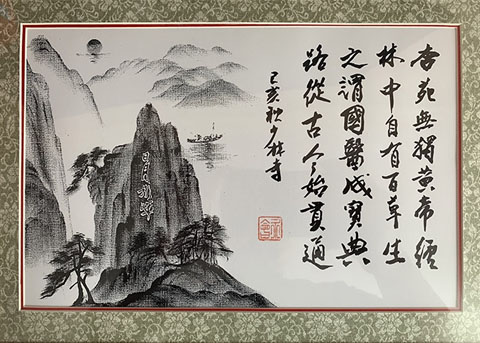 杏苑無獨黃帝經
林中自有百草生
之謂國醫成寶典
路從古人始貫通
己亥秋少林寺
日月